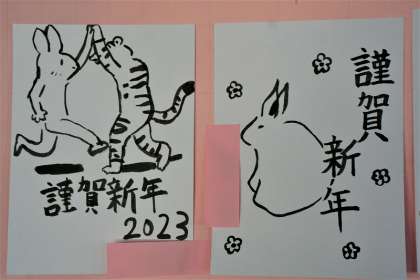 謹賀新年
2023
謹賀
新年